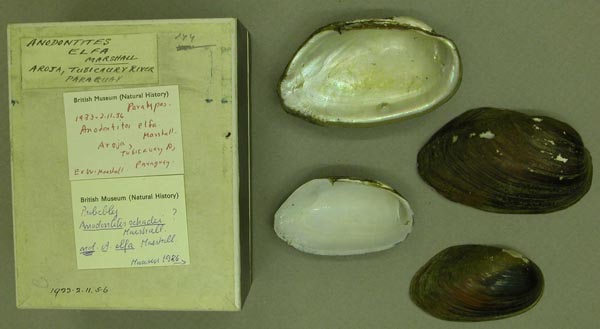 ANODONTITES
ELFA
MARSHALL
AROJA, TUBICAURY RIVER
PARAGUAY
British Museum (Natural History)
Paratypes.
1933-2.11.56
Anodontites elfa
Marshall.
Aroja,
Tubicaury R,
Paraguay.
British Museum (Natural History)
Probably ?
Anodontites
Marshall.
not A. elfa Marshall
1986
1933-2.11.56